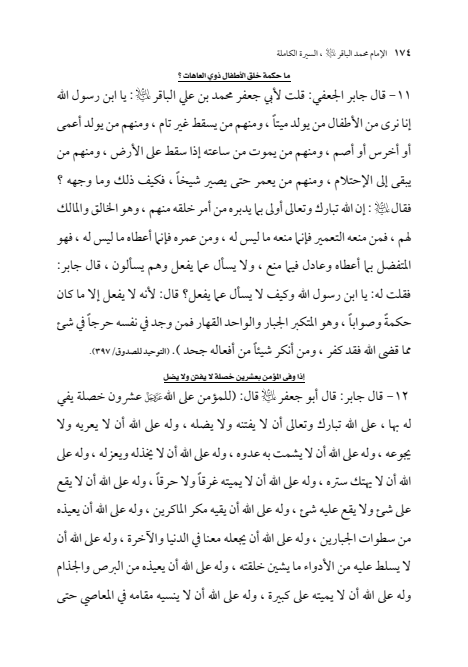 ١٧٤ الإمام محمد الباقر ﷺ ، السيرة الكاملة
ما حكمة خلق الأطفال ذوي العاهات ؟
١١- قال جابر الجعفي: قلت لأبي جعفر محمد بن علي الباقر : يا ابن رسول الله
إنا نرى من الأطفال من يولد ميتاً ، ومنهم من يسقط غير تام ، ومنهم من يولد أعمى
أو أخرس أو أصم ، ومنهم من يموت من ساعته إذا سقط على الأرض ، ومنهم من
يبقى إلى الإحتلام ، ومنهم من يعمر حتى يصير شيخاً ، فكيف ذلك وما وجهه ؟
فقال : إن الله تبارك وتعالى أولى بما يدبره من أمر خلقه منهم ، وهو الخالق والمالك
لهم ، فمن منعه التعمير فإنما منعه ما ليس له ، ومن عمره فإنما أعطاه ما ليس له ، فهو
المتفضل بما أعطاه وعادل فيما منع ، ولا يسأل عما يفعل وهم يسألون ، قال جابر:
فقلت له: يا ابن رسول الله وكيف لا يسأل عما يفعل؟ قال: لأنه لا يفعل إلا ما كان
حكمةً وصواباً ، وهو المتكبر الجبار والواحد القهار فمن وجد في نفسه حرجاً في شئ
مما قضى الله فقد كفر ، ومن أنكر شيئاً من أفعاله جحد ). (التوحيد للصدوق/ ٣٩٧).
إذا وفى المؤمن بعشرين خصلة لا يفتن ولا يضل
١٢- قال جابر: قال أبو جعفر قال: (للمؤمن على الله عشرون خصلة يفي
له بها ، على الله تبارك وتعالى أن لا يفتنه ولا يضله ، وله على الله أن لا يعريه ولا
يجوعه ، وله على الله أن لا يشمت به عدوه ، وله على الله أن لا يخذله ويعزله ، وله على
الله أن لا يهتك ستره ، وله على الله أن لا يميته غرقاً ولا حرقاً ، وله على الله أن لا يقع
على شئ ولا يقع عليه شئ ، وله على الله أن يقيه مكر الماكرين ، وله على الله أن يعيذه
من سطوات الجبارين ، وله على الله أن يجعله معنا في الدنيا والآخرة ، وله على الله أن
لا يسلط عليه من الأدواء ما يشين خلقته ، وله على الله أن يعيذه من البرص والجذام
وله على الله أن لا يميته على كبيرة ، وله على الله أن لا ينسيه مقامه في المعاصي حتى